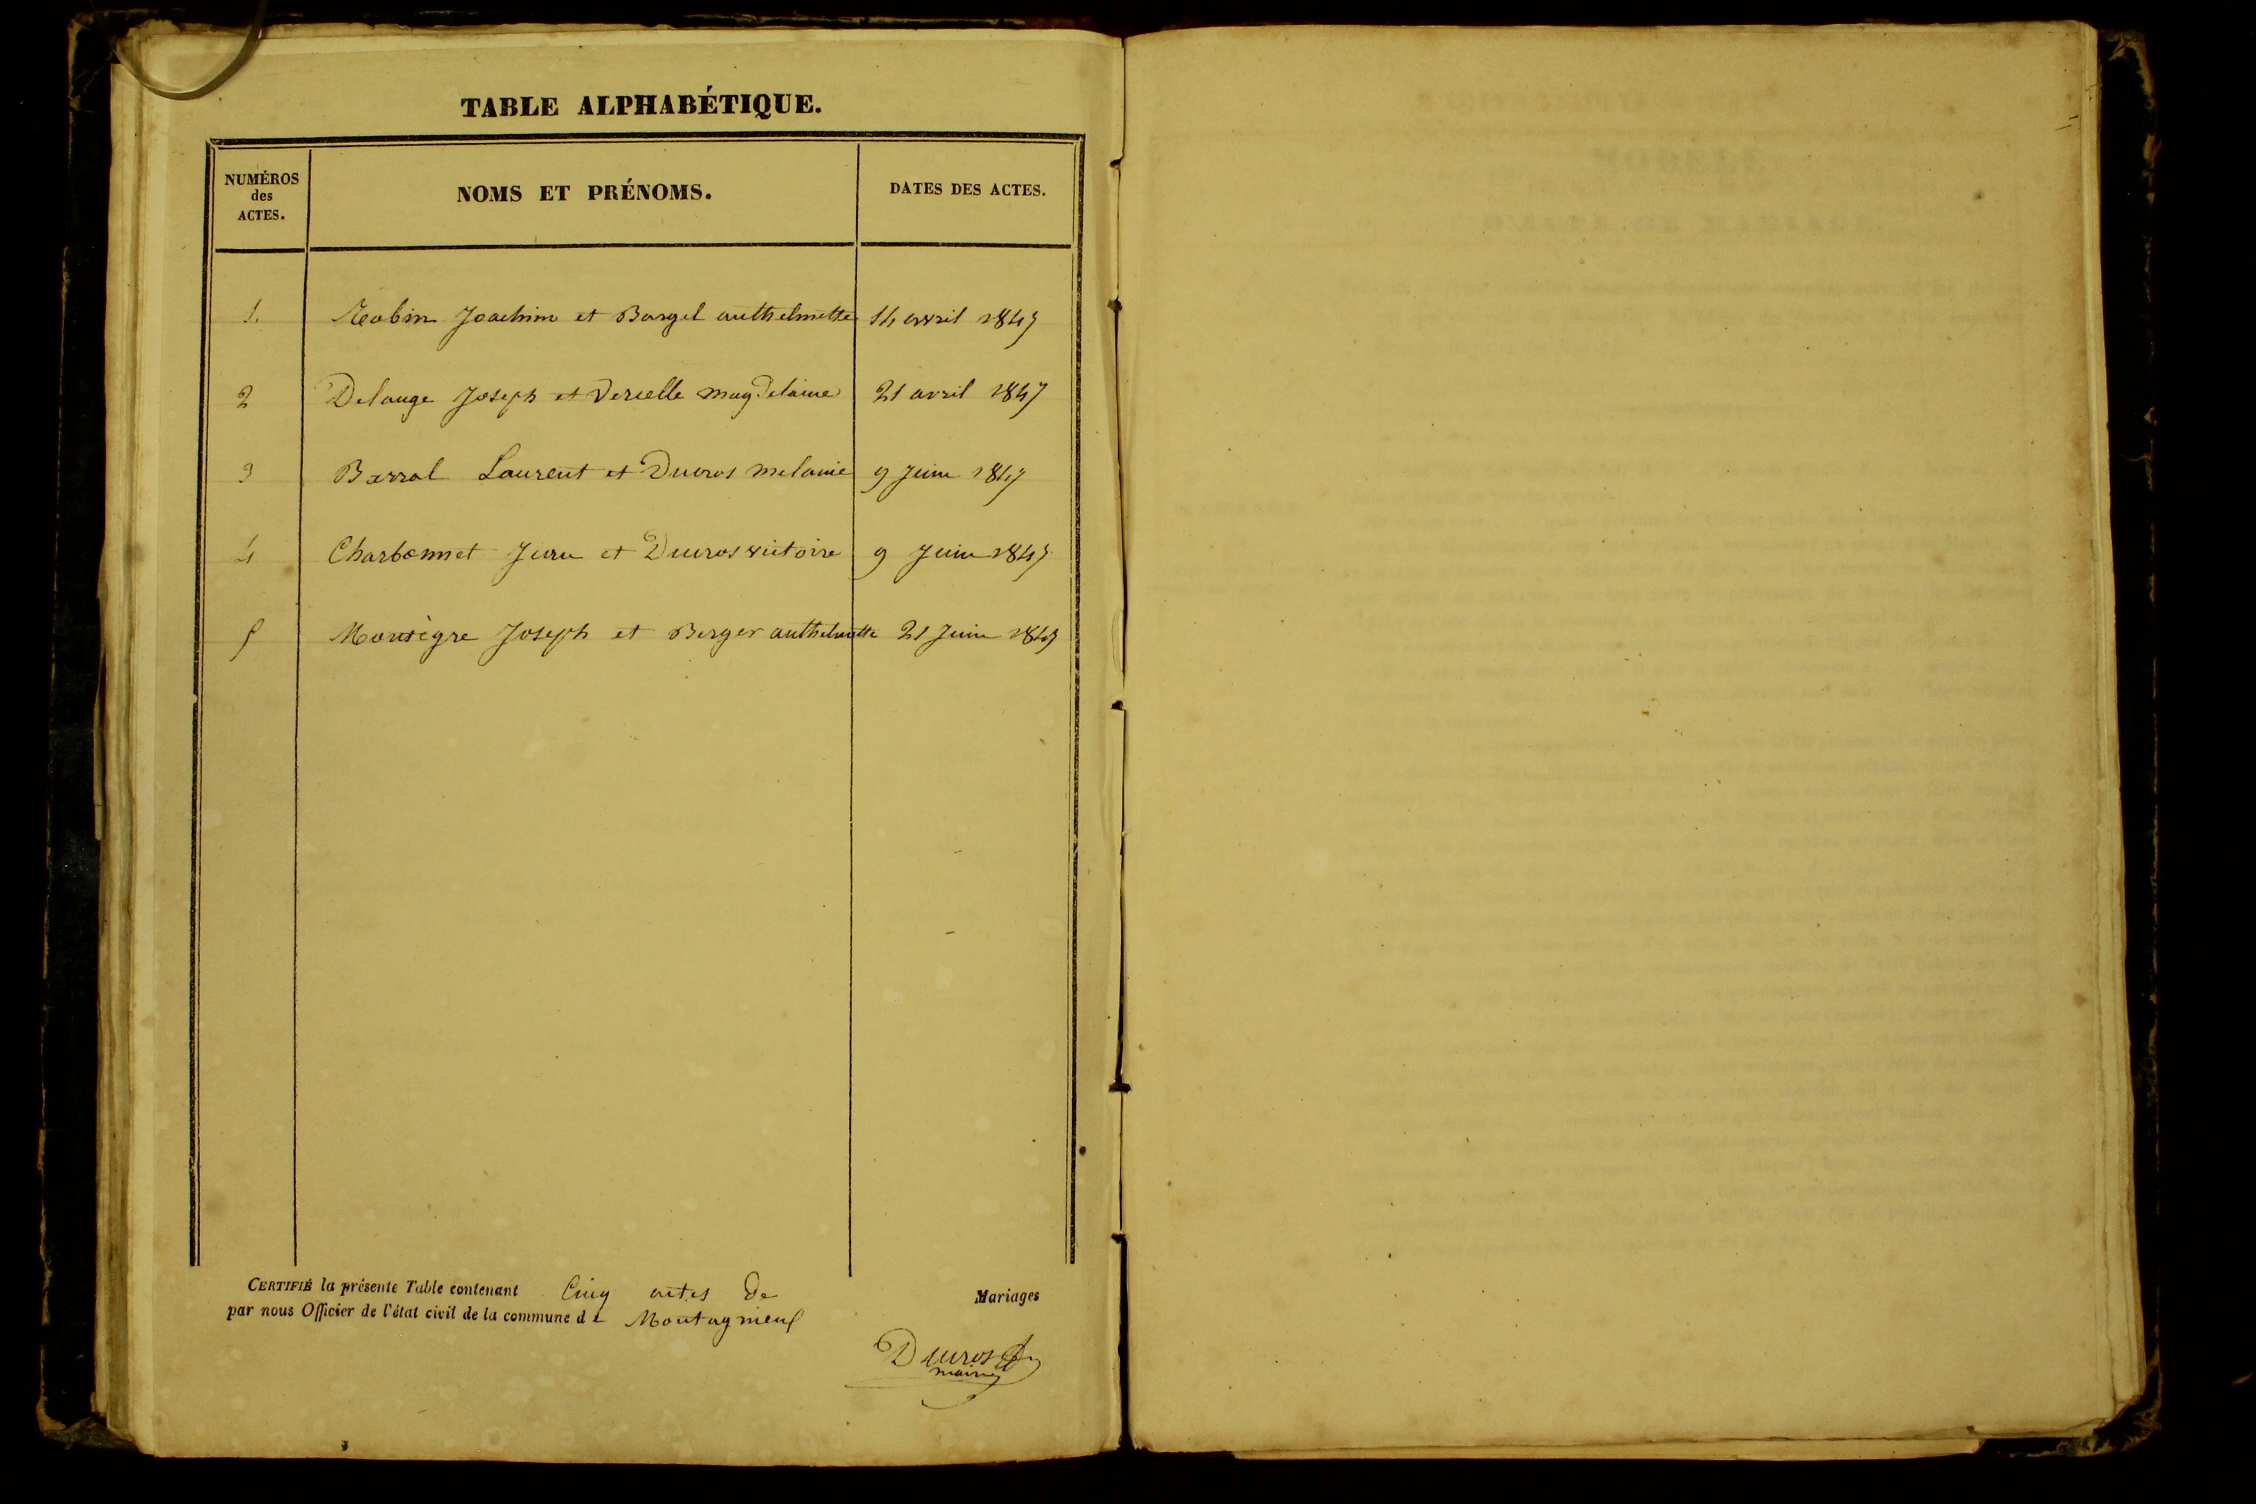 TABLE ALPHABÉTIQUE.
NUMÉROS des ACTES.
NOMS ET PRÉNOMS.
DATES DES ACTES.
1. Robin Joachim et Bargel anthelmette 14 avril 1847
2 Delauge Joseph et Vercelle magdelaine 21 avril 1847
3 Barral Laurent et Ducros melanie 9 Juin 1847
4 Charbonnet et Ducros victoire 9 Juin 1847
5 Montègre Joseph et Berger anthelmette 21 Juin 1847
CERTIFIÉ la présente Table contenant Cinq actes de Mariages
par nous Officier de l'état civil de la commune de Montagnieux
Ducros
maire